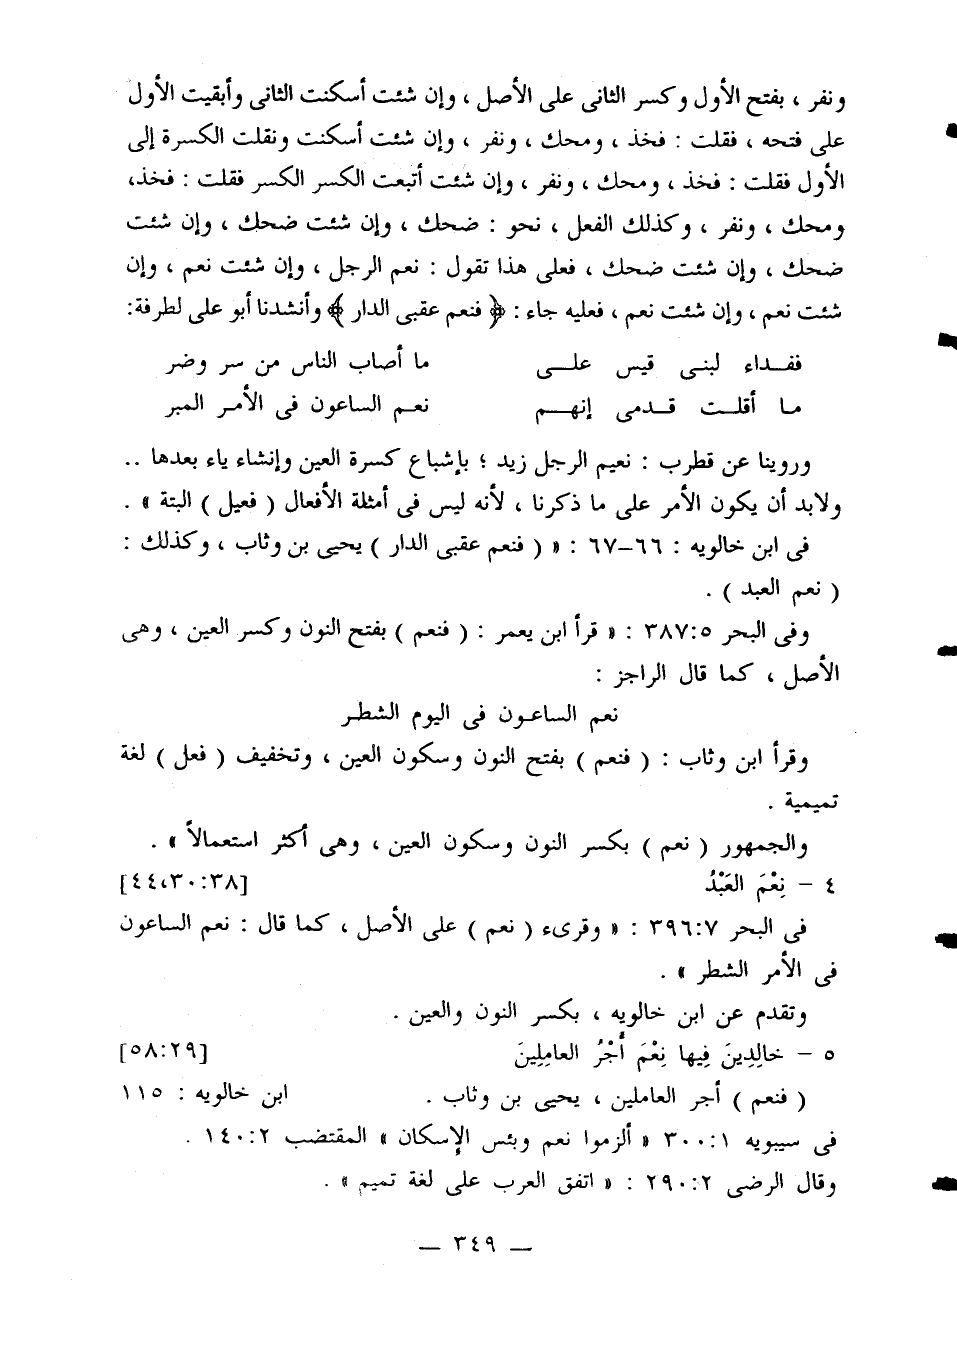 ونفر ، بفتح الأول وكسر الثانى على الأصل ، وإن شئت أسكنت الثانى وأبقيت الأول
على فتحه ، فقلت : فخذ ، ومحك ، ونفر ، وإن شئت أسكنت ونقلت الكسرة إلى
الأول فقلت : فخذ ، ومحك ، ونفر ، وإن شئت أتبعت الكسر الكسر فقلت : فخذ،
ومحك ، ونفر ، وكذلك الفعل ، نحو : ضحك ، وإن شئت ضحك ، وإن شئت
ضحك ، وإن شئت ضحك ، فعلى هذا تقول : نعم الرجل ، وإن شئت نعم ، وإن
شئت نعم ، وإن شئت نعم ، فعليه جاء : ﴿ فنعم عقبى الدار ﴾ وأنشدنا أبو على لطرفة:
ففـداء لبنـى قيس علـى ما أصاب الناس من سر وضر
مـا أقلـت قـدمى إنهـم نعـم الساعون فى الأمـر المبر
وروينا عن قطرب : نعيم الرجل زيد ؛ بإشباع كسرة العين وإنشاء ياء بعدها ..
ولابد أن يكون الأمر على ما ذكرنا ، لأنه ليس فى أمثلة الأفعال ( فعيل ) البتة » .
فى ابن خالويه : ٦٦–٦٧ : « ( فنعم عقبى الدار ) يحيى بن وثاب ، وكذلك :
( نعم العبد ) .
وفى البحر ٣٨٧:٥ : « قرأ ابن يعمر : ( فنعم ) بفتح النون وكسر العين ، وهى
الأصل ، كما قال الراجز :
نعم الساعـون فى اليوم الشطـر
وقرأ ابن وثاب : ( فنعم ) بفتح النون وسكون العين ، وتخفيف ( فعل ) لغة
تميمية .
والجمهور ( نعم ) بكسر النون وسكون العين ، وهى أكثر استعمالاً » .
٤ – نِعْمَ العَبْدُ [٤٤،٣٠:٣٨]
فى البحر ٣٩٦:٧ : « وقرىء ( نعم ) على الأصل ، كما قال : نعم الساعون
فى الأمر الشطر » .
وتقدم عن ابن خالويه ، بكسر النون والعين .
٥ – خالِدِينَ فِيها نِعْمَ أَجْرُ العامِلِينَ [٥٨:٢٩]
( فنعم ) أجر العاملين ، يحيى بن وثاب . ابن خالويه : ١١٥
فى سيبويه ٣٠٠:١ « ألزموا نعم وبئس الإسكان » المقتضب ١٤٠:٢ .
وقال الرضى ٢٩٠:٢ : « اتفق العرب على لغة تميم » .
— ٣٤٩ —